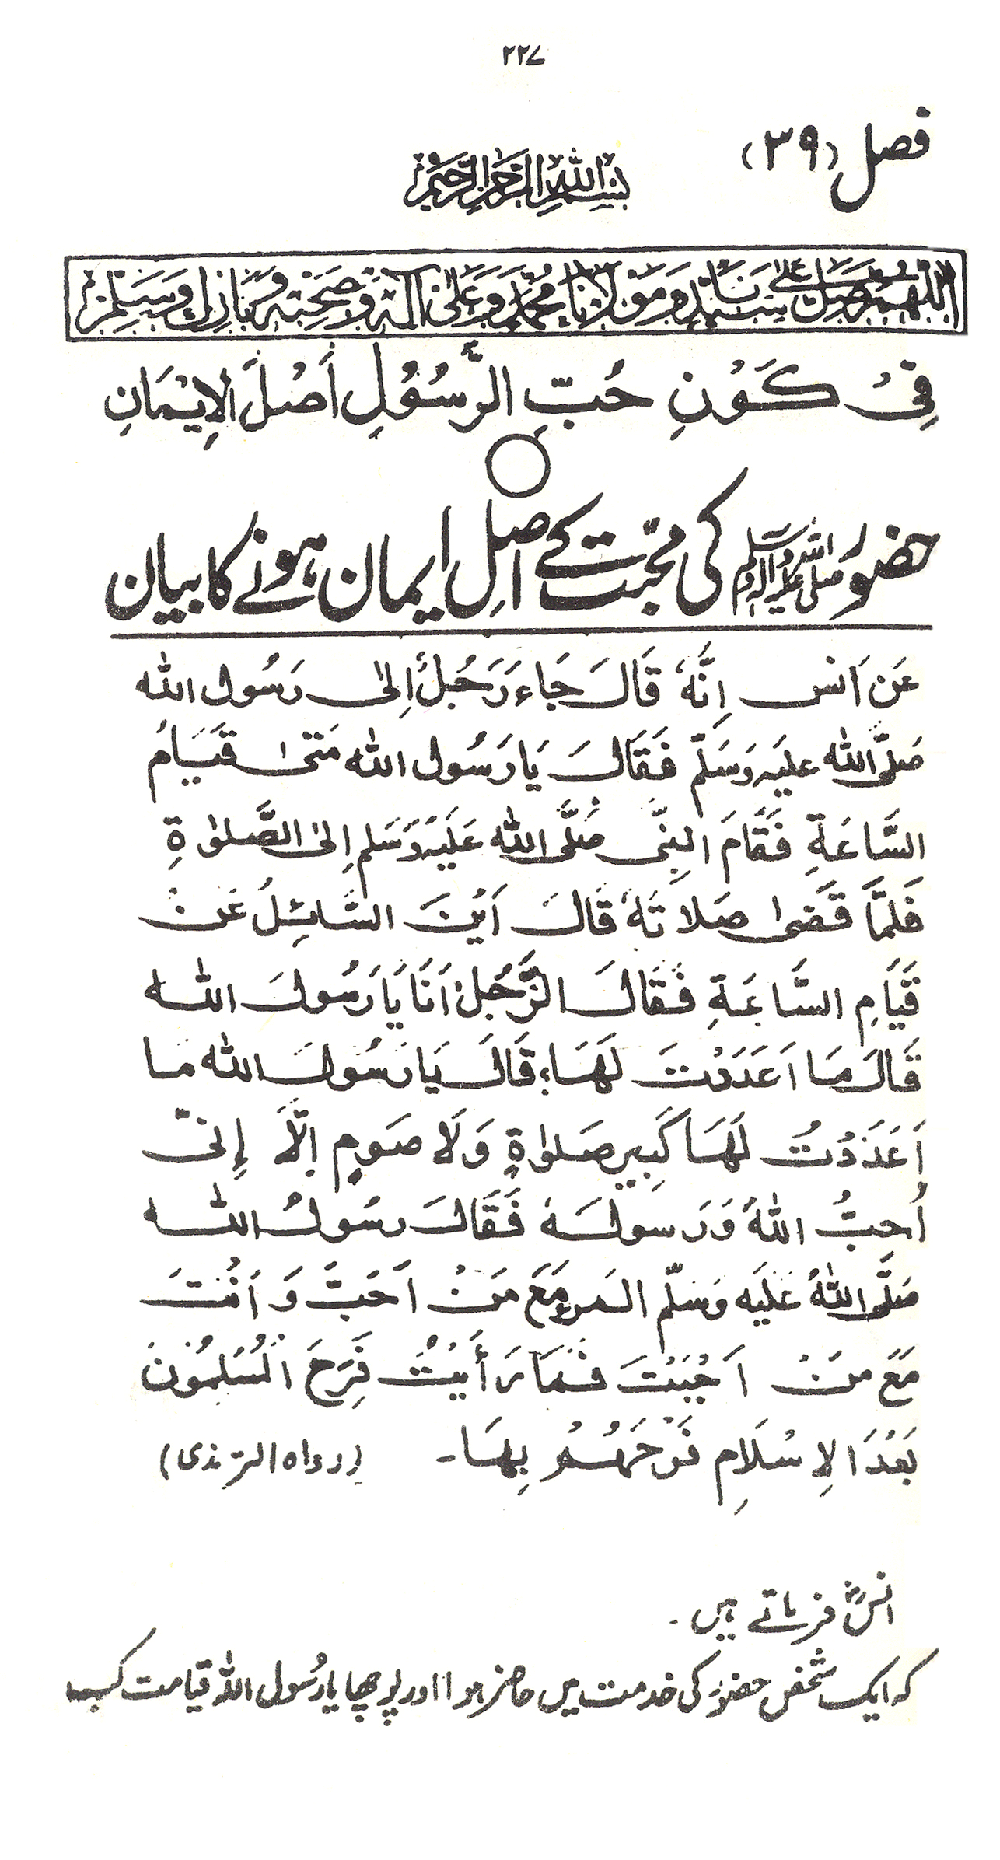 ۲۲۷
فصل (۳۹)
بِسْمِ اللهِ الرَّحْمٰنِ الرَّحِيْمِ
اَللّٰهُمَّ صَلِّ عَلٰى سَيِّدِنَا وَمَوْلَانَا مُحَمَّدٍ وَّعَلٰى اٰلِهٖ وَصَحْبِهٖ وَبَارِكْ وَسَلِّمْ
فِیْ كَوْنِ حُبِّ الرَّسُوْلِ أَصْلَ الإِيْمَانِ
حضورؐ صلی اللہ علیہ وآلہ وسلم کی محبّت کے اصلِ ایمان ہونے کا بیان
عَن اَنس اِنَّهٗ قَالَ جَاءَ رَجُلٌ اِلٰى رَسُول الله
صَلَّى الله عليه وَسَلَّم فَقَالَ يَا رَسُول الله مَتىٰ قَيَامُ
السَّاعَةِ فَقَامَ النبِىّ صَلَّى الله عَلَيْه وَسَلم اِلىٰ الصَّلوٰةِ
فَلمَّا قَضىٰ صلَاتَهٗ قَالَ اَيْنَ السَّائِلُ عَنْ
قَيَامِ السَّاعَةِ فَقَالَ الرَّجُلُ اَنَا يَا رَسُولَ الله
قَالَ مَا اَعَدَدْتَ لَهَا؛ قَالَ يَا رَسُولَ الله ما
اَعَدَدْتُ لَهَا كَبِير صَلوٰةٍ وَلَا صَومٍ اِلَّا اِنىّ
اُحبُّ اللهَ وَرَسولَهٗ فَقَالَ رسُولُ الله
صَلَّى اللهُ عَليَه وَسَلّم المرء مَعَ مَنْ اَحَبَّ وَاَنْتَ
مَعَ مَنْ اَحْبَبْتَ فَمَا رَأَيْتُ فَرِحَ الْمُسْلِمُونَ
بَعْدَ الاِسْلَامِ فَرْحَهُمْ بِهَا۔ (رواه الترمذی)
انسؓ فرماتے ہیں۔
کہ ایک شخص حضورؐ کی خدمت میں حاضر ہوا اور پوچھا یا رسُول اللہ قیامت کب